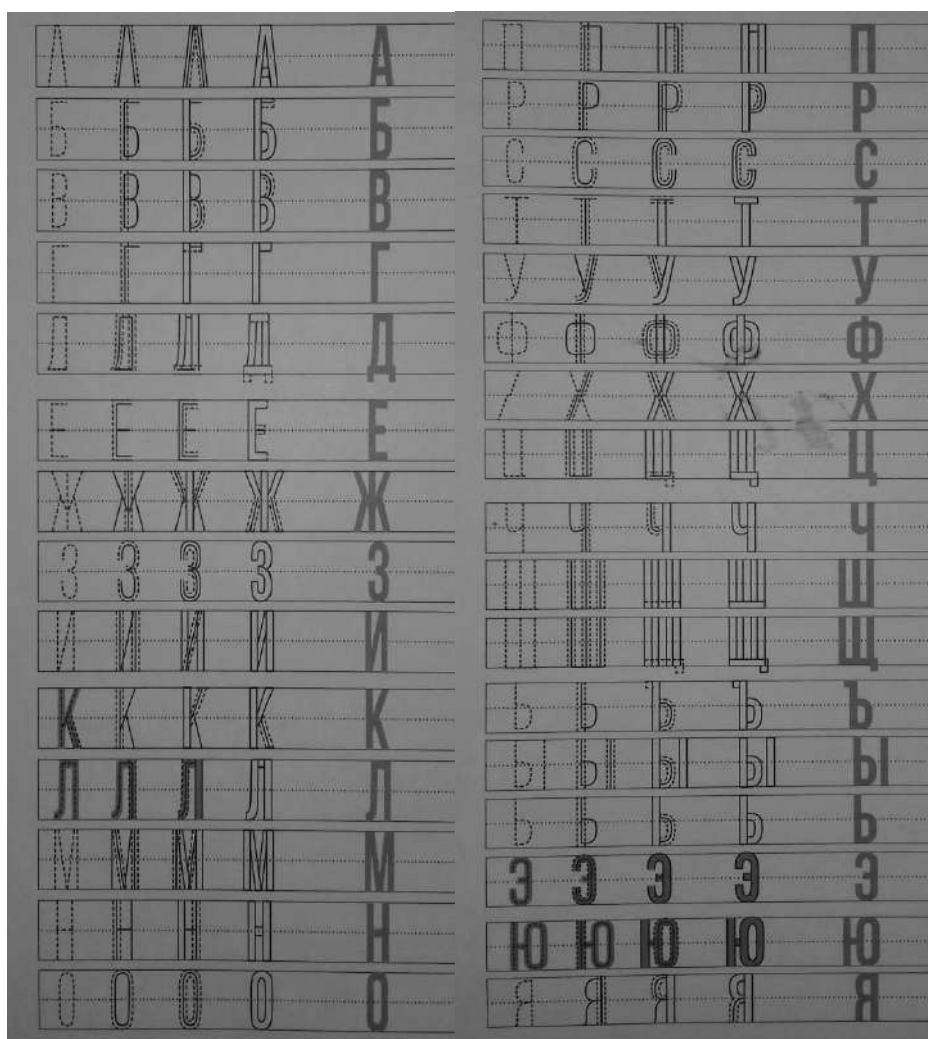 А А А А А
Б Б Б Б Б
В В В В В
Г Г Г Г Г
Д Д Д Д Д
Е Е Е Е Е
Ж Ж Ж Ж Ж
З З З З З
И И И И И
К К К К К
Л Л Л Л Л
М М М М М
Н Н Н Н Н
О О О О О
П П П П П
Р Р Р Р Р
С С С С С
Т Т Т Т Т
У У У У У
Ф Ф Ф Ф Ф
Х Х Х Х Х
Ц Ц Ц Ц Ц
Ч Ч Ч Ч Ч
Ш Ш Ш Ш Ш
Щ Щ Щ Щ Щ
Ъ Ъ Ъ Ъ Ъ
Ы Ы Ы Ы Ы
Ь Ь Ь Ь Ь
Э Э Э Э Э
Ю Ю Ю Ю Ю
Я Я Я Я Я